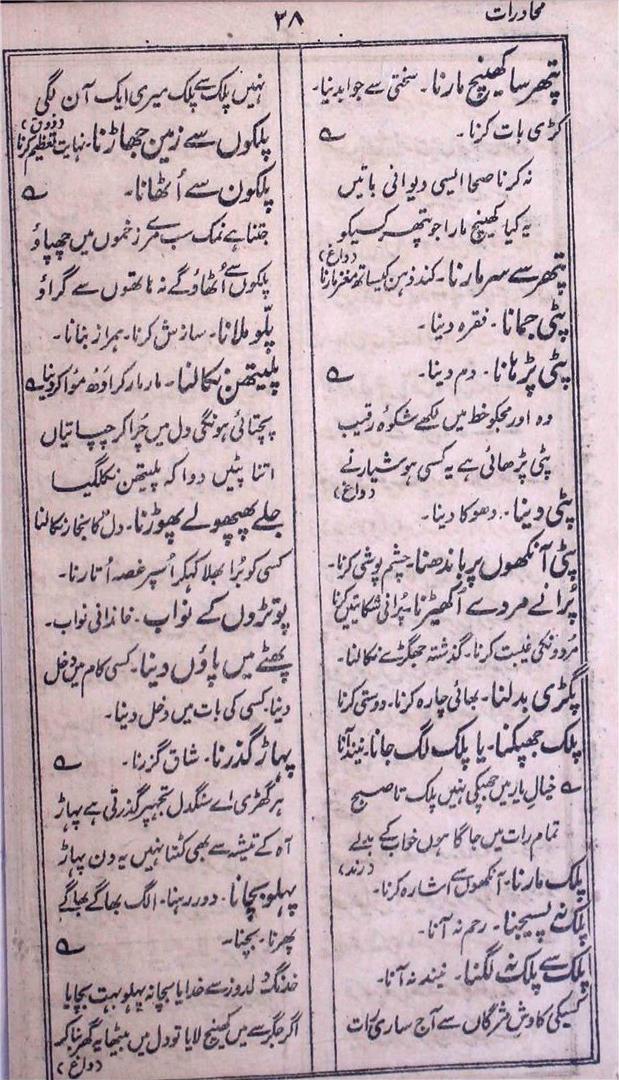 محاورات
۳۸
پتھر سا کھینچ مارنا۔ سختی سے جواب دینا۔
کڑی بات کرنا۔ ؎
نہ کرنا صحا ایسی دیوانی باتیں
یہ کیا کھینچ مارا جو پتھر کسیکو
(داغ)
پتھر سے سر مارنا۔ کند ذہن کیساتھ مغز مارنا
پٹی جمانا۔ فقرہ دینا۔
پٹی پڑہانا۔ دم دینا۔ ؎
وہ اور مجکو خط میں لکھے شکوۂ رقیب
پٹی پڑھائی ہے یہ کسی ہوشیار نے
(داغ)
پٹی دینا۔ دھوکا دینا۔
پٹی آنکھوں پر باندھنا۔ چشم پوشی کرنا۔
پُرانے مردے اُکھیڑنا۔ پُرانی شکایتیں کرنا
مُردونکی غیبت کرنا۔ گذشتہ جھگڑے نکالنا۔
پگڑی بدلنا۔ بھائی چارہ کرنا۔ دوستی کرنا
پلک جھپکنا۔ یا پلک لگ جانا۔ نیند آنا
؎ خیالِ یار میں جھپکی نہیں پلک تا صبح
تمام رات میں جاگا ہوں خواب کے بدلے
(رند)
پلک مارنا۔ آنکھوں سے اشارہ کرنا۔
پلک نہ پسیجنا۔ رحم نہ آنا۔
پلک سے پلک نہ لگنا۔ نیند نہ آنا۔
کسیکی کاوشِ مژگاں سے آج ساری رات
نہیں پلک سے پلک میری ایک آن لگی
(ذوق)
پلکوں سے زمین جھاڑنا۔ نہایت تعظیم کرنا
پلکون سے اُٹھانا۔ ؎
جتنا ہے نمک سب مرے زخموں میں چھپاؤ
پلکوں سے اُٹھاؤ گے نہ ہاتھوں سے گراؤ
پلّو ملانا۔ سازش کرنا۔ ہمراز بنانا۔
پلیتھن نکالنا۔ مار مار کر ادھ مُوا کر دینا ؎
پچتائی ہونگی دل میں چُرا کر چپاتیاں
اتنا پٹیں دوا کہ پلیتھن نکل گیا
جلے پھپھولے پھوڑنا۔ دل کا بخار نکالنا
کسی کو بُرا بھلا کہکر اُسپر غصہ اُتارنا۔
پوتڑوں کے نواب۔ خاندانی نواب۔
پھٹے میں پاؤں دینا۔ کسی کام میں دخل
دینا۔ کسی کی بات میں دخل دینا۔
پہاڑ گذرنا۔ شاق گزرنا۔ ؎
ہر گھڑی اے سنگدل تجھپر گذرتی ہے پہاڑ
آہ کے تیشہ سے بھی کٹتا نہیں یہ دن پہاڑ
پہلو بچانا۔ دور رہنا۔ الگ بھاگے بھاگے
پھرنا۔ بچنا۔ ؎
خدنگ دلدوز سے خدایا بچا نہ پہلو بہت بچایا
اگر جگر سے میں کھینچ لایا تو دل میں بیٹھا یہ گھر بنا کر
(داغ)